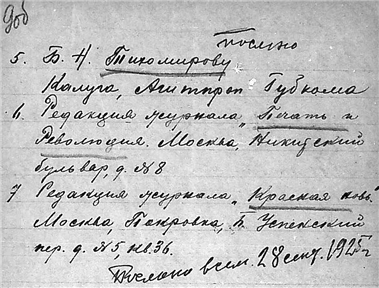 послано
5. Б. Н. Тихомирову
Калуга, Агитпроп Губкома
6. Редакция журнала „Печать и
Революция". Москва, Никитский
бульвар, д. № 8
7 Редакция журнала „Красная новь"
Москва, Покровка, Б. Успенский
пер. д. № 5, кв. 36.
Послано всем. 28 сент. 1925 г